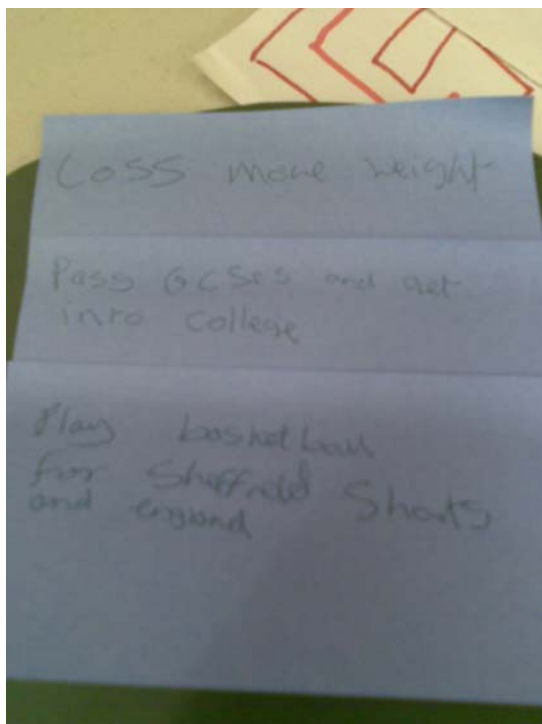 Loss more weight
Pass GCSEs and get
into college
Play basketball
for Sheffield Sharks
and england